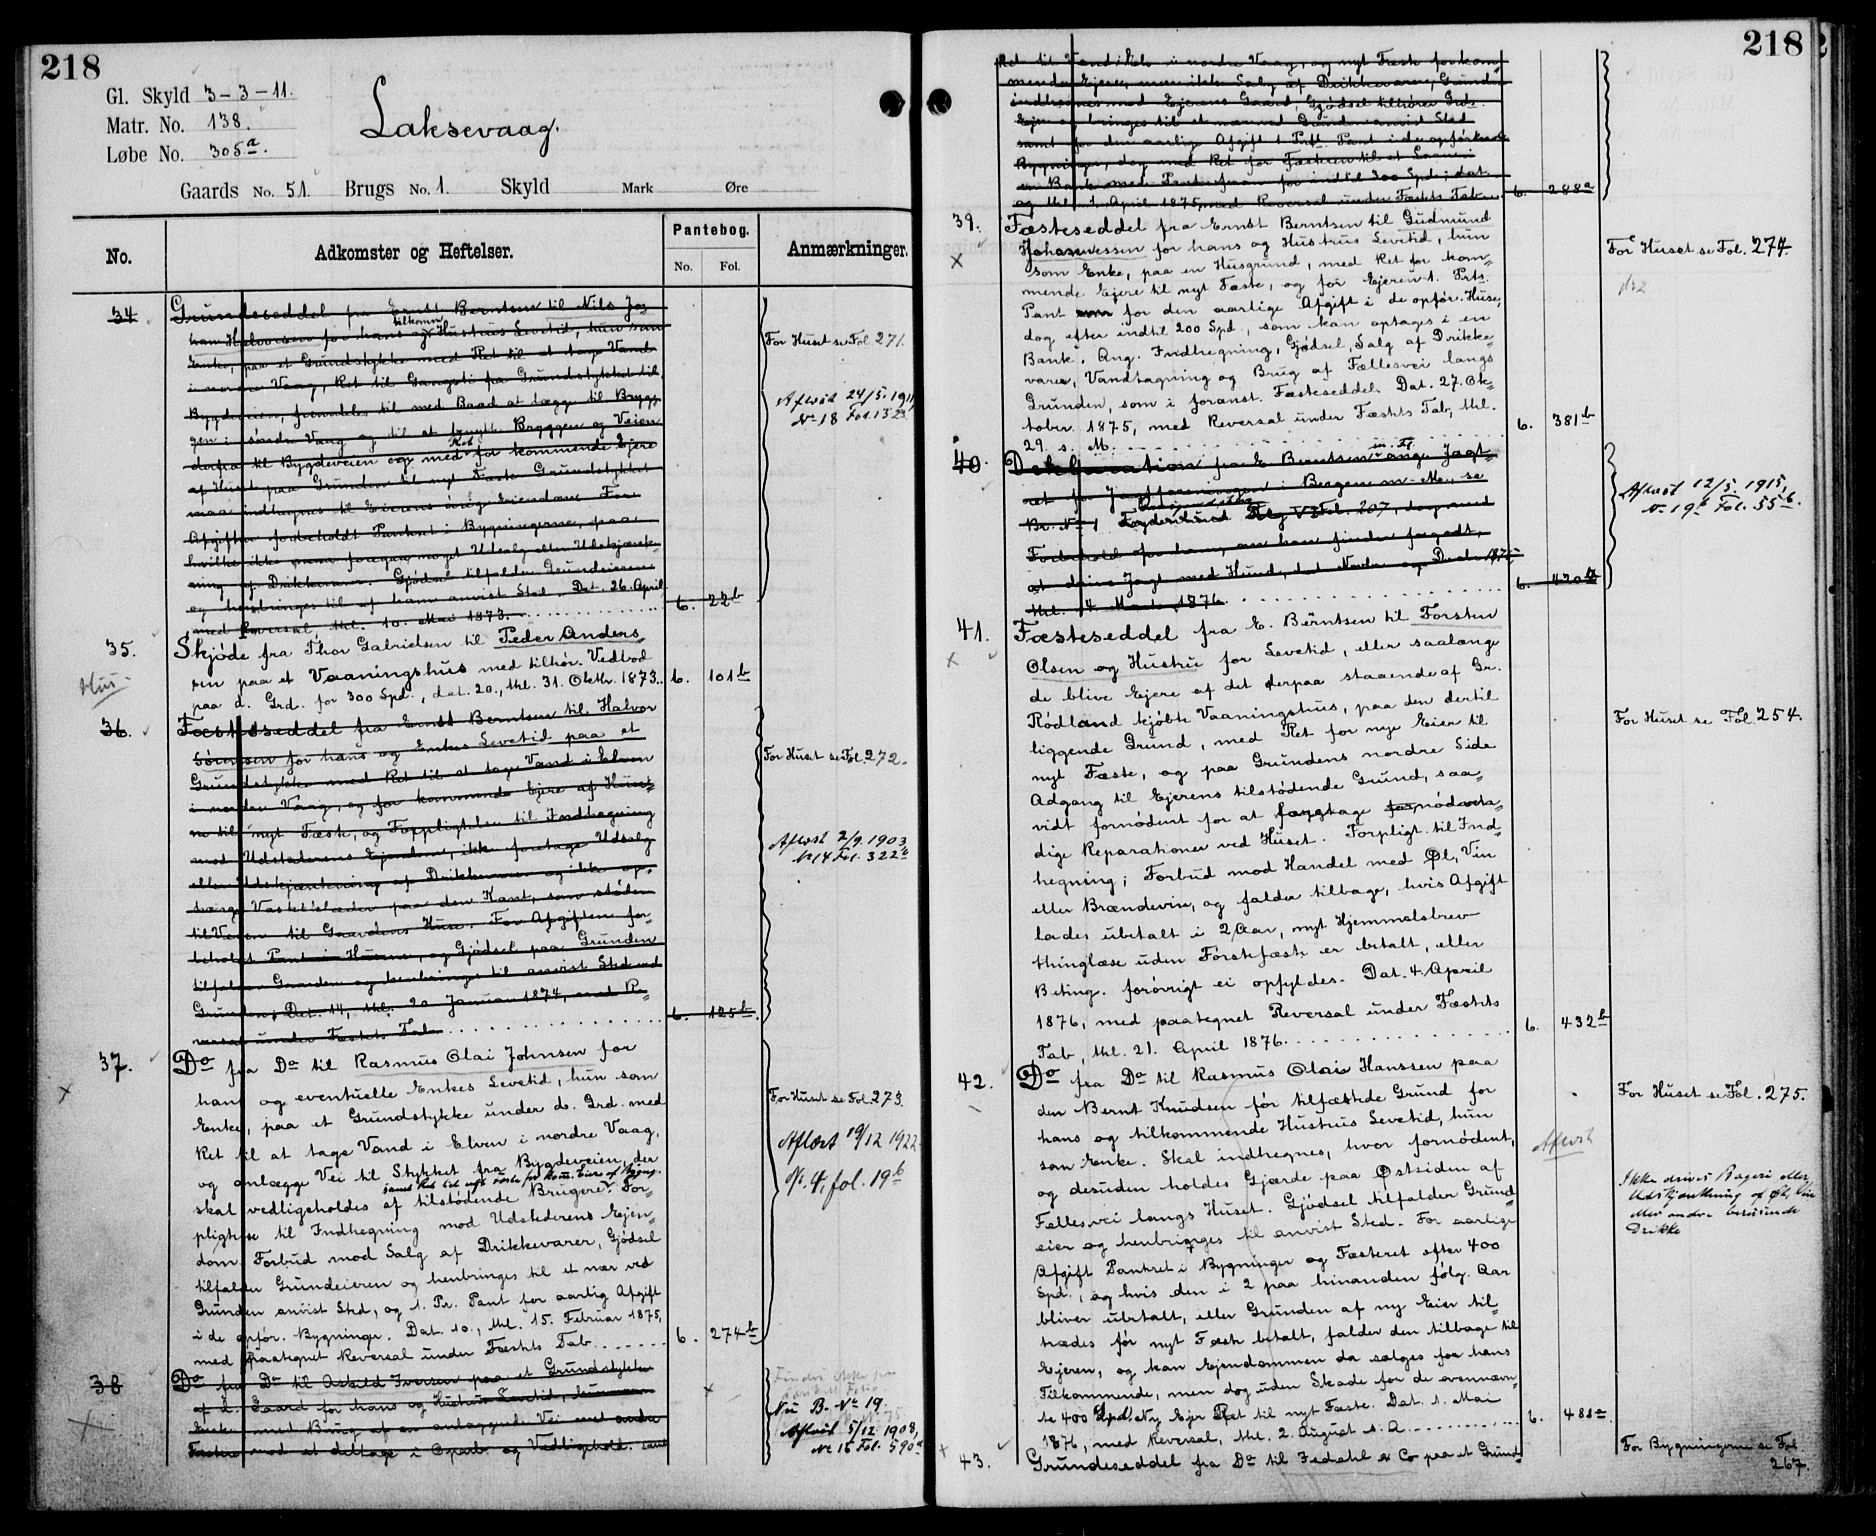 218
Gl. Skyld 3-3-11.
Matr. No. 138.
Løbe No. 305a.
Laksevaag.
Gaards No. 51. Brugs No. 1. Skyld Mark Øre
No. Adkomster og Heftelser. Pantebog. No. Fol. Anmærkninger.
34 Grundeseddel fra Ernst Berntsen til Nils Jo-
han Halvorsen for hans og tilkomm. Hustrus Levetid, hun som
Enke, paa et Grundstykke med Ret til at tage Vand
i nordre Vaag, Ret til Gangsti fra Grundstykket til
Bygdeveien, fremdeles til med Baad at lægge til Bryg-
gen i søndre Vaag og til at benytte Bryggen og Veien
derfra til Bygdeveien og med Ret for kommende Ejere
af Huset paa Grunden til nyt Fæste. Grundstykket
maa indhegnes til Eierens øvrige Eiendom. For
Afgiften forbeholdt Panteret i Bygningerne, paa
hvilke ikke maa foregaa noget Udsalg eller Udskjænk-
ning af Drikkevarer. Gjødsel tilfalder Grundeieren
og henbringes til af ham anvist Sted. Dat. 26. April
med Reversal, thl. 10. Mai 1873. 6. 22b
For Huset se Fol. 271.
Aflæst 24/5 1911
No 18 Fol. 132a
35. Skjøde fra Thor Gabrielsen til Peder Anders-
sen paa et Vaaningshus med tilhør. Vedbod
paa d. Grd. for 300 Spd., dat. 20., thl. 31. Oktbr. 1873. 6. 101b
Hus
36. Fæsteseddel fra Ernst Berntsen til Halvor
Sørensen for hans og Enkes Levetid paa et
Grundstykke med Ret til at tage Vand i Elven
i nordre Vaag, og for kommende Ejere af Huse-
ne til nyt Fæste, og Forpligtelse til Indhegning
mod Udstederens Ejendom, ikke foretage Udsalg
eller Udskjænkning af Drikkevarer og ikke op-
hænge Vaskeklæder paa den Kant, som støder
til Veien til Gaardens Huse. For Afgiften for-
beholdt Pant i Husene, og Gjødsel paa Grunden
tilfalder Gaarden og henbringes til anvist Sted ved
Grunden. Dat. 14, thl. 20. Januar 1874, med Re-
versal under Fæstets Tab 6. 125b.
For Huset se Fol. 272.
Aflæst 2/9. 1903
No 14 Fol. 322b
37. Do fra Do til Rasmus Olai Johnsen for
hans og eventuelle Enkes Levetid, hun som
Enke, paa et Grundstykke under d. Grd. med
Ret til at tage Vand i Elven i nordre Vaag,
og anlægge Vei til Stykket fra Bygdeveien, der
skal vedligeholdes af tilstødende Brugere. For-
samt Ret til nyt Fæste for kom. Eiere af Bygng.
pligtelse til Indhegning mod Udstederens Ejen-
dom. Forbud mod Salg af Drikkevarer, Gjødsel
tilfalder Grundeieren og henbringes til et nær ved
Grunden anvist Sted, og 1. Pr. Pant for aarlig Afgift
i de opfør. Bygninger. Dat. 10., thl. 15. Februar 1875,
med paategnet Reversal under Fæstets Tab 6. 274b
For Huset se Fol. 273.
Aflæst 19/12 1922
No. 4, fol. 19b
38 Do fra Do til Askild Iversen paa et Grundstykke
af d. Gaard for hans og Hustrus Levetid, hun som
Enke med Brug af en anlæggende Vei med andre
Fæstere mod at deltage i Oparb. og Vedligehold. samt
Nu B. No 19.
Aflæst 5/12 1908,
No 16 Fol. 590a
218
Ret til Vand i Elv i nordre Vaag, og nyt Fæste for kom-
mende Ejere, men ikke Salg af Drikkevarer, Grunden
indhegnes mod Ejerens Gaard, Gjødsel tilhører Grds.
Ejer og bringes til et nær ved Grunden anvist Sted
samt for den aarlige Afgift 1 Prt. Pant i de opførte
Bygninger, dog med Ret for Fæsteren til et Laan i
en Bank med Pant foran for indtil 300 Spd., dat.
og thl. 1. April 1875, med Reversal under Fæstets Tab 6. 288a
39. Fæsteseddel fra Ernst Berntsen til Gudmund
Johannessen for hans og Hustrus Levetid, hun
som Enke, paa en Husgrund, med Ret for kom-
mende Ejere til nyt Fæste, og for Ejeren 1. Prts.
Pant for den aarlige Afgift i de opfør. Huse,
dog efter indtil 200 Spd., som kan optages i en
Bank. Ang. Indhegning, Gjødsel, Salg af Drikke-
varer, Vandtagning og Brug af Fællesvei langs
Grunden, som i foranst. Fæsteseddel. Dat. 27. Ok-
tober 1875, med Reversal under Fæstets Tab, thl.
29. s. M. 6. 381b
For Huset se Fol. 274.
40. Deklaration fra E. Berntsen m. Fl. ang. Jagt-
ret for Jagtforeningen i Bergen m. M., se
Br. No 1 Fol. 207, dog med
Forbehold for ham, om han finder forgodt,
at drive Jagt med Hund, dat. Novbr. og Decbr. 1875
thl. 14. Marts 1876 6. 420a
Aflæst 12/5 1915,
No 19b Fol. 55b.
41. Fæsteseddel fra E. Berntsen til Torsten
Olsen og Hustru for Levetid, eller saalænge
de blive Ejere af det derpaa staaende af Gr.
Rødland kjøbte Vaaningshus, paa den dertil
liggende Grund, med Ret for nye Eier til
nyt Fæste, og paa Grundens nordre Side
Adgang til Ejerens tilstødende Grund, saa-
vidt fornødent for at foregtage nødven-
dige Reparationer ved Huset. Forpligt. til Ind-
hegning; Forbud mod Handel med Øl, Vin
eller Brændevin, og falder tilbage, hvis Afgift
lades ubetalt i 2 Aar, nyt Hjemmelsbrev
thinglæse uden Førstefæste er betalt, eller
Beting. forøvrigt ei opfyldes. Dat. 4. April
1876, med paategnet Reversal under Fæstets
Tab, thl. 21. April 1876. 6. 432b
For Huset se Fol. 254.
42. Do fra Do til Rasmus Olai Hanssen paa
den Bernt Knudsen før tilfæstede Grund for
hans og tilkommende Hustrus Levetid, hun
som Enke. Skal indhegnes, hvor fornødent,
og desuden holdes Gjærde paa Østsiden af
Fællesvei langs Huset. Gjødsel tilfalder Grund-
eier og henbringes til anvist Sted. For aarlige
Afgift Panteret i Bygninger og Fæsteret efter 400
Spd., og hvis den i 2 paa hinanden følg. Aar
bliver ubetalt, eller Grunden af ny Eier til-
trædes før nyt Fæste betalt, falder den tilbage til
Ejeren, og kan Ejendommen da sælges for hans
Tilkommende, men dog uden Skade for de ovennævn-
te 400 Spd. Ny Ejer Ret til nyt Fæste. Dat. 1. Mai
1876, med Reversal, thl. 2. August s. A. 6. 488a
For Huset se Fol. 275.
Aflæst
Ikke drives Bageri eller
Udskjænkning af Øl, Vin
eller andre berusende
Drikke
43. Grundeseddel fra Do til Fedahl & Co paa et Grund-
For Bygningerne se Fol
267.